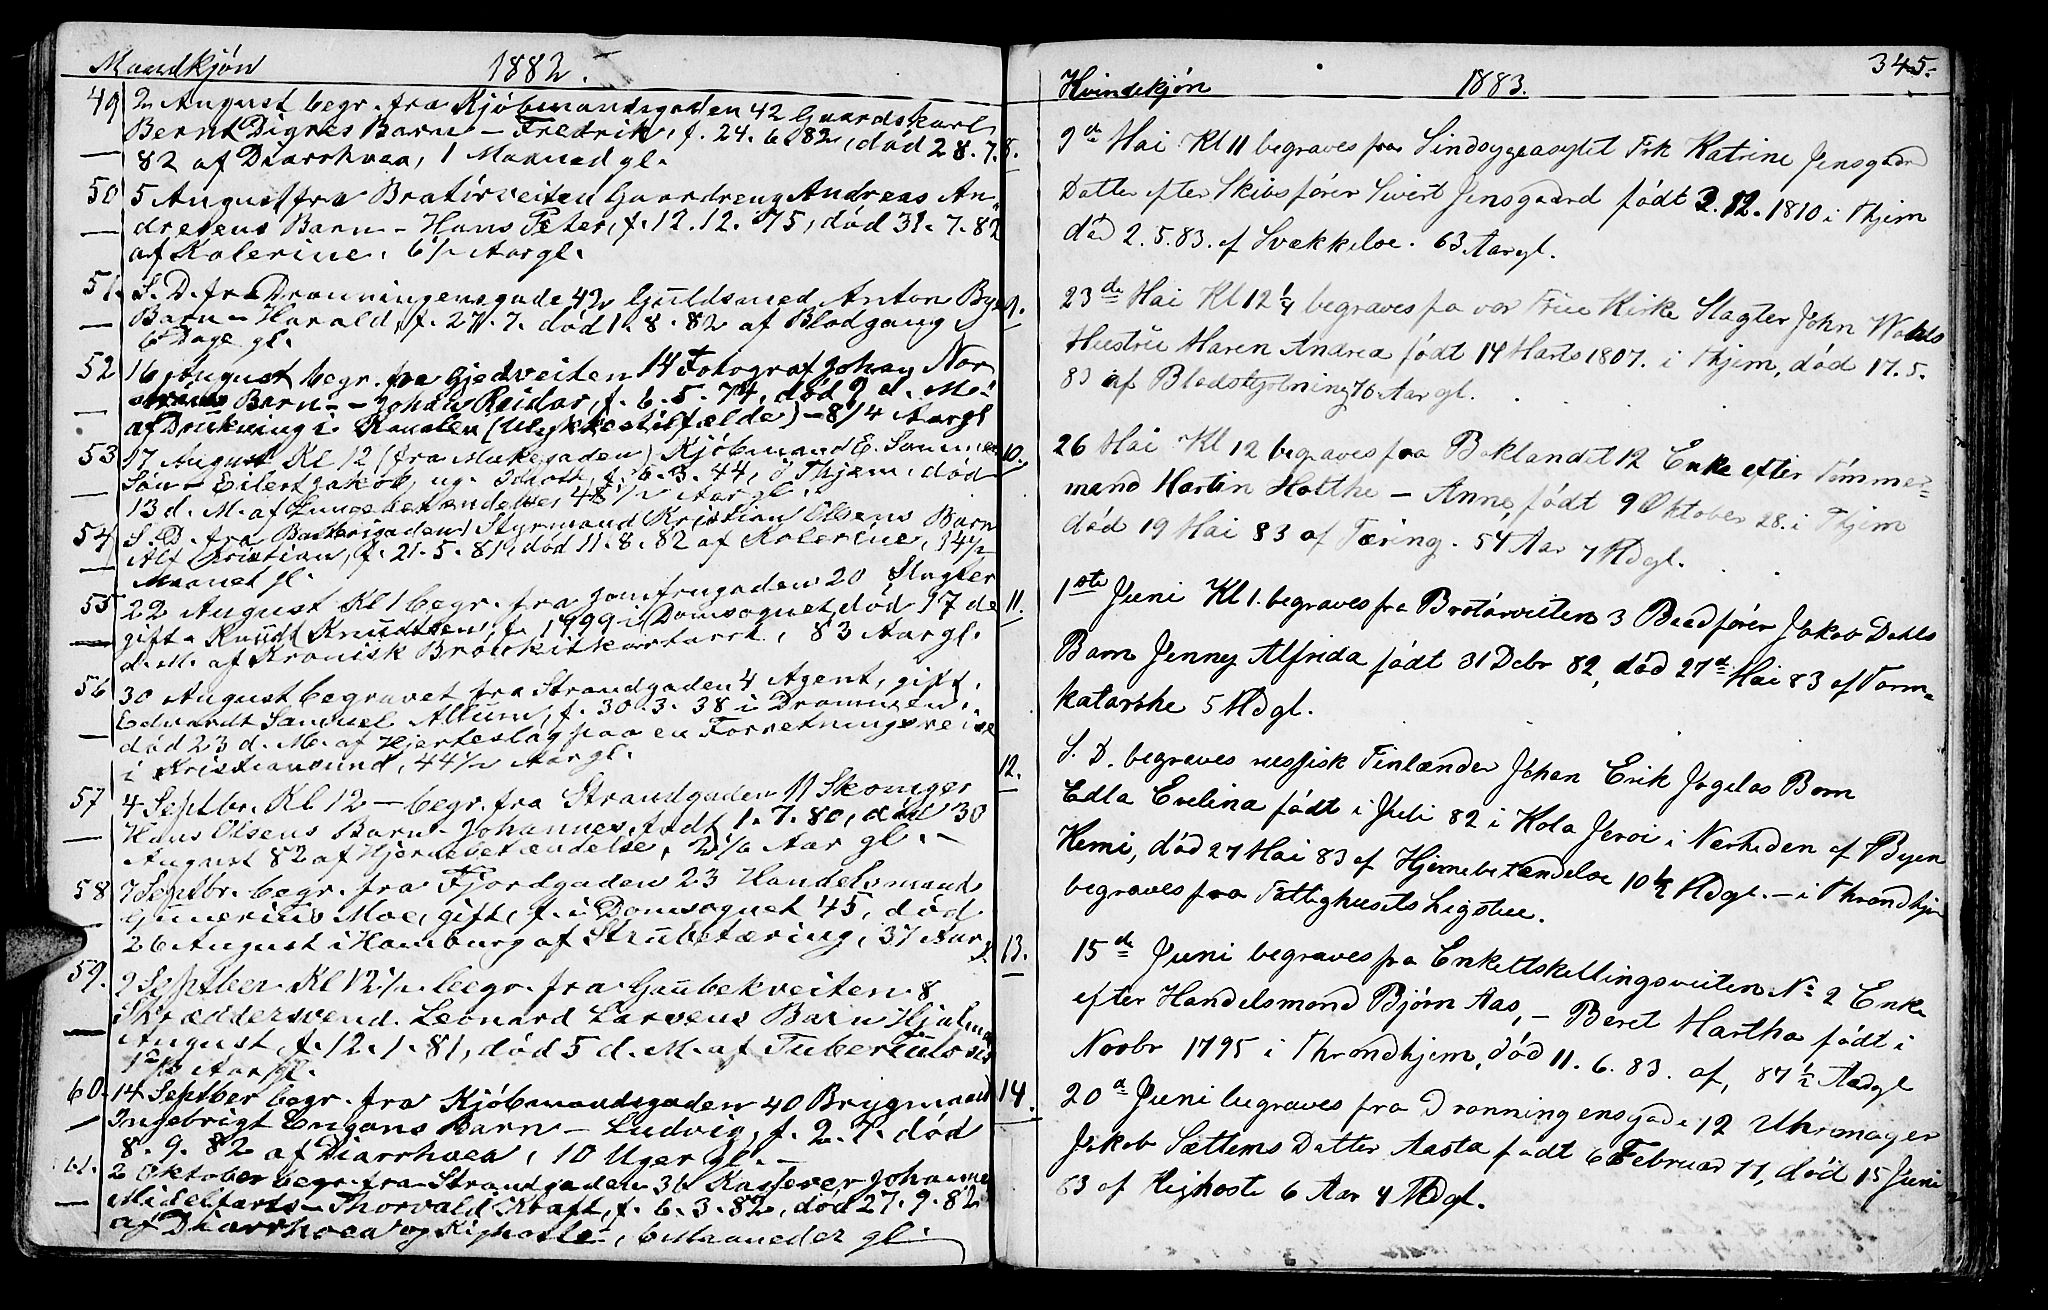 Mandkjón 1882.
49 2 August begr. fra Kjöbmandsgaden 42 Gaardskarl
Bernt Dignes Barn – Fredrik, f. 24. 6. 82, död 28. 7.
82 af Diarrhoea, 1 Maaned gl.
50 5 August fra Bratörveiten Gaardreng Andreas An-
dresens Barn – Hans Peter, f. 12. 12. 75, död 31. 7. 82
af Kolerine. 6½ Aar gl.
51. S. D. fra Dronningensgade 42 Guldsmed Anton Byes
Barn – Harald, f. 27. 7. död 1. 8. 82 af Blodgang
6 Dage gl.
52 16 August begr. fra Gjedveiten 14 Fotograf Johan Nor
Barn – Johan Reidar, f. 6. 5. 74, död 9 d. M.
af Drukning i Kanalen (Ulykkestilfælde) – 8¼ Aar gl
53 17 August Kl 12 (fra Munkegaden) Kjöbmand E. Sommers
Sön – Eilert Jakob, ug. f. 6. 3. 44, i Thjem, död
13 d. M. af Lungebetændelse,
54 S. D. fra Bakkegaden Styrmand Kristian Olsens Barn
Alf Kristian, f. 21. 5. 81, död 11. 8. 82 af Kolerine, 14½
Maanet gl.
55 22 August Kl 1 begr. fra Jomfrugaden 20 Slagter
gift Knudt Knudtsen, f. 1799 i Domsognet, död 17 de
d. M. af Kronisk Bronkitkatarrh, 83 Aar gl.
56 30 August begravet fra Strandgaden 4 Agent, gift,
Edvardt Samuel Allum, f. 30. 3. 38 i Drammen,
död 23 d. M. af Hjerteslag paa en Forretningsreise
i Kristiansund, 44½ Aar gl.
57 4 Septbr. Kl 12 – begr. fra Strandgaden 11 Skomger
Hans Olsens Barn – Johannes, födt 1. 7. 80, död 30
August 82 af Hjernebetændelse, 2 1/6 Aar gl. –
58 7 Septbr. begr. fra Fjordgaden 23 Handelsmand
Gunerius Moe, gift, f. i Domsognet 45, död
26 August i Hamburg af Strubetæring, 37 Aar gl
59. 9 Septber Kl 12½ begr. fra Gaubekveiten 8
Skræddersvend Leonard Larsens Barn Hjalmar
August, f. 12. 1. 81, död 5 d. M. af Tuberkulosis
Aar gl.
60. 14 Septber begr. fra Kjöbmandsgaden 40 Brygmand
Ingebrigt Engans Barn – Ludvig, f. 2. 7. död
8. 9. 82 af Diarrhoea, 10 Uger gl. –
61. 2 Oktober begr. fra Strandgaden 36 Kasserer Johannes
Midelfarts – Thorvald Kraft, f. 6. 3. 82, död 27. 9. 82
af Diarrhoea og Kighoste – 6 Maaneder gl.
Kvindekjön 1883. 345.
8. 9de Mai Kl 11 begraves fra Sindsygeasylet Frk Katrine Jensgaard
Datter efter Skibsförer Sivert Jensgaard födt 2. 12. 1810 i Thjem
död 2. 5. 83. af Svækkelse. 63 Aar gl.
9. 23de Mai Kl 12¼ begraves fra vor Frue Kirke Slagter John Wolds
Hustru Maren Andrea födt 14 Marts 1807. i Thjem, död 17. 5.
83 af Blodstyrtning 76 Aar gl.
10. 26 Mai Kl 12 begraves fra Baklandet 12 Enke efter Tömmer-
mand Martin Hotthe – Anne, födt 9 Oktober 28. i Thjem
död 19 Mai 83 af Tæring. 54 Aar 7 Mdgl.
11. 1ste Juni Kl 1. begraves fra Bratörveiten 3 Baadförer Jakob Dahls
Barn Jenny Alfrida födt 31 Debr 82, död 27de Mai 83 af Tarm-
katarrhe 5 Mdgl.
12. S. D. begraves russisk Finlænder Johan Erik Jogelas Barn
Edla Evelina födt i Juli 82 i Kola Jervi i Nærheden af Byen
Kemi, död 27 Mai 83 af Hjernebetændelse 10½ Mdgl. – i Throndhjem
begraves fra Fattighusets Ligstue.
13. 15de Juni begraves fra Enkeltskillingsveiten No 2 Enke
efter Handelsmand Björn Aas, – Beret Martha födt i
Novbr 1795 i Throndhjem, död 11. 6. 83. af, 87½ Aar gl
14. 20de Juni begraves fra Dronningensgade 12 Uhrmager
Jakob Sættems Datter Aasta födt 6 Februar 77, död 15 Juni
83 af Kighoste 6 Aar 4 Mdgl.